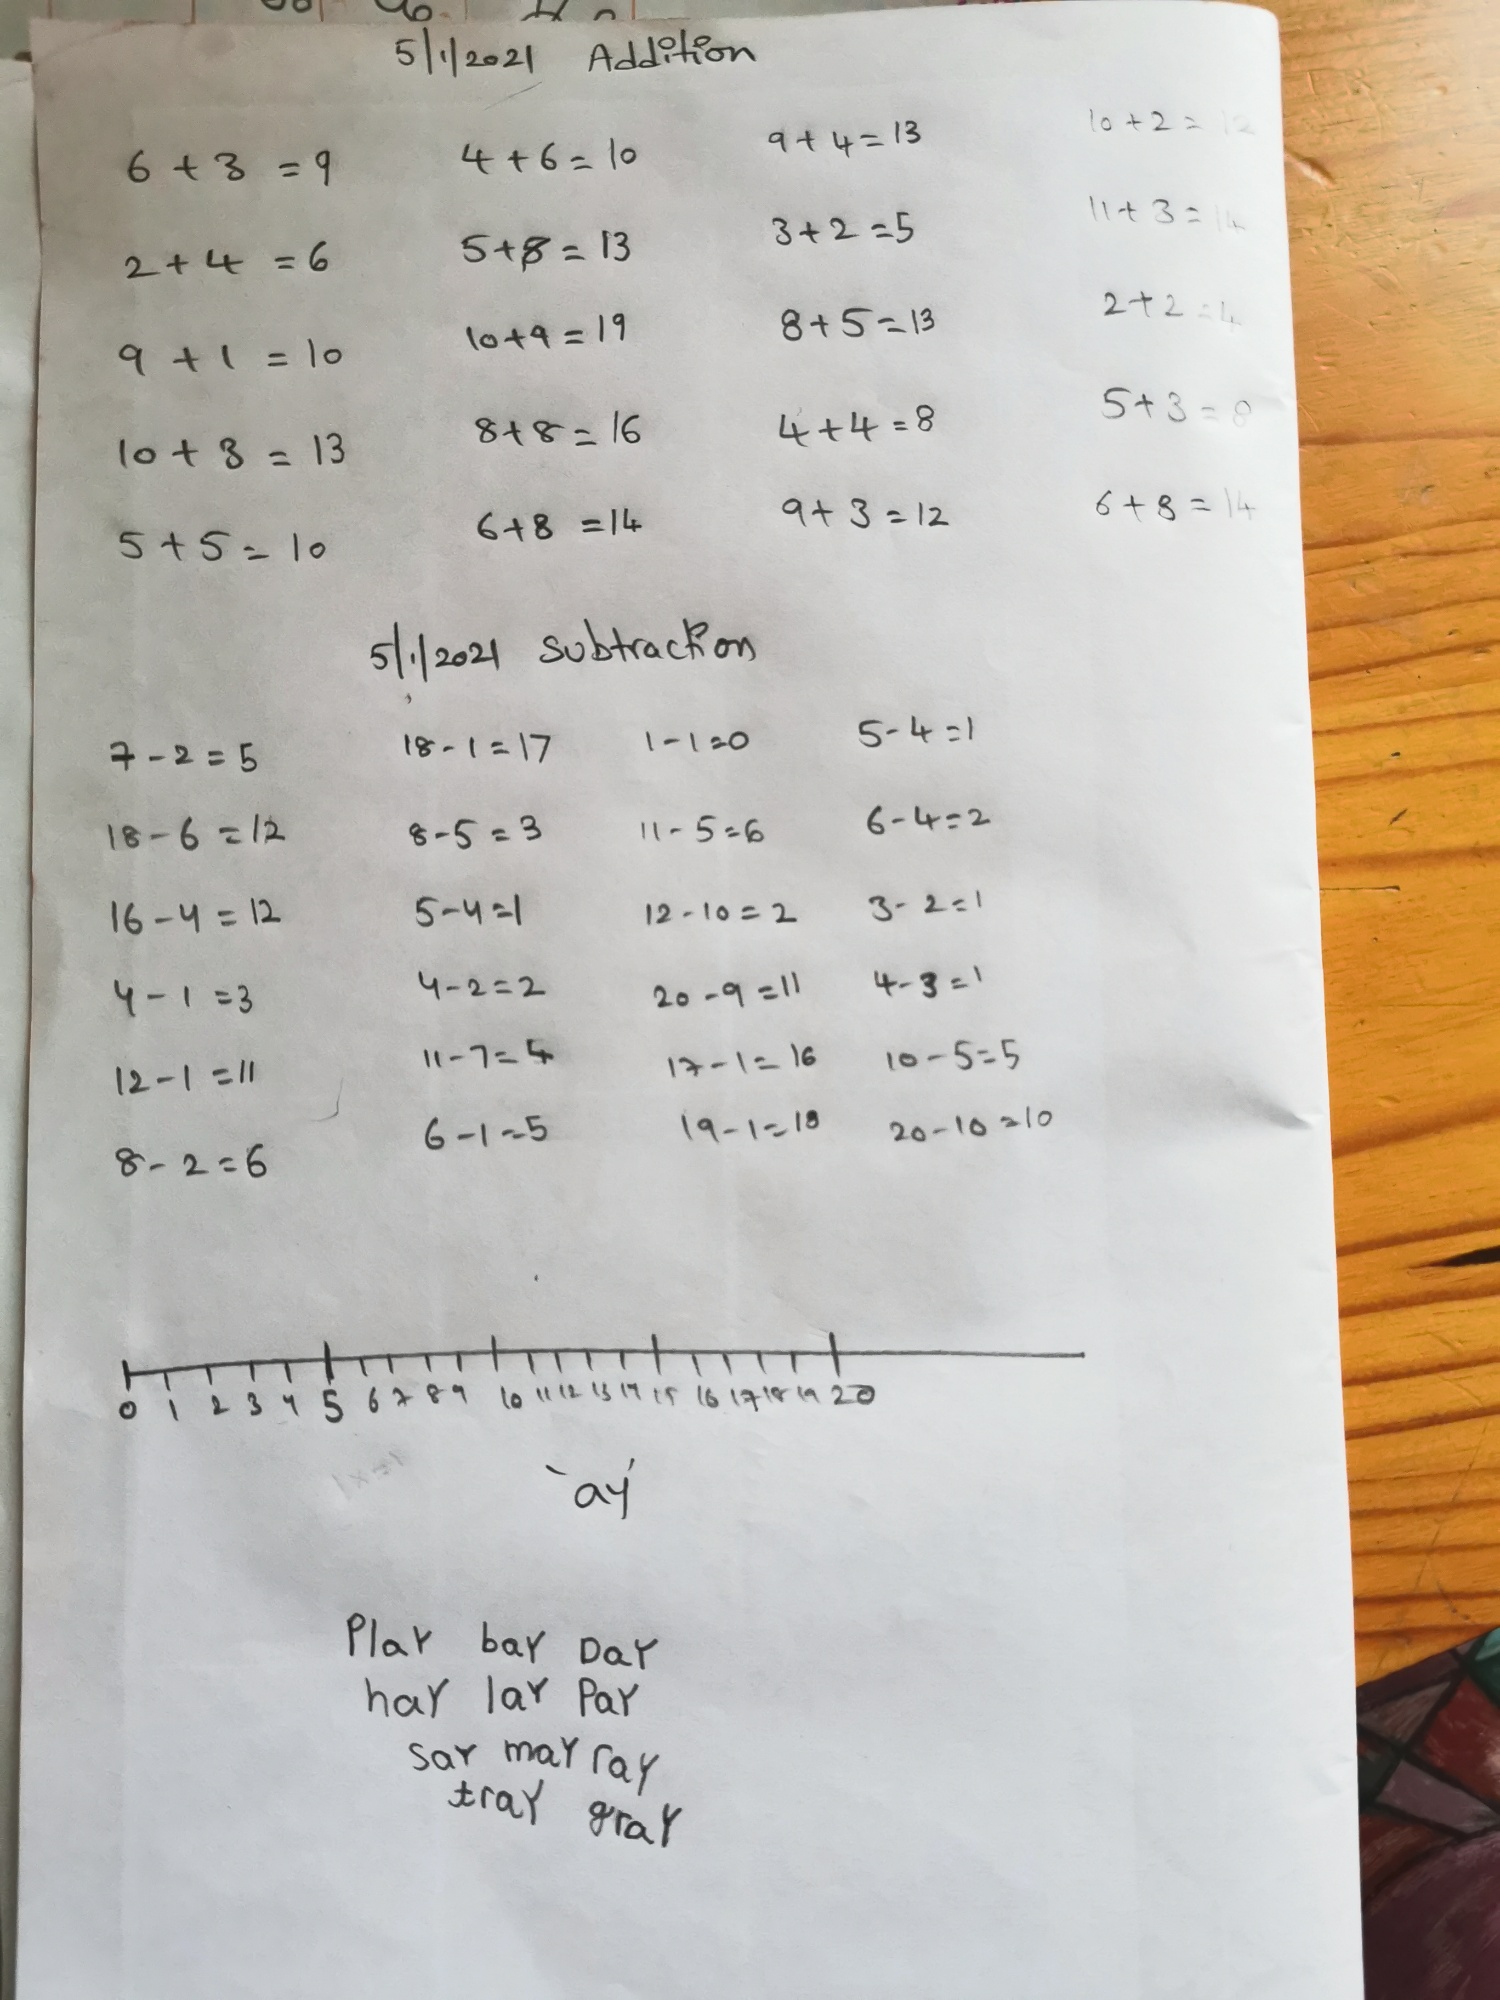 5/1/2021 Addition
6 + 3 = 9 4 + 6 = 10 9 + 4 = 13 10 + 2 = 12
2 + 4 = 6 5 + 8 = 13 3 + 2 = 5 11 + 3 = 14
9 + 1 = 10 10 + 9 = 19 8 + 5 = 13 2 + 2 = 4
10 + 3 = 13 8 + 8 = 16 4 + 4 = 8 5 + 3 = 8
5 + 5 = 10 6 + 8 = 14 9 + 3 = 12 6 + 8 = 14
5/1/2021 Subtraction
7 - 2 = 5 18 - 1 = 17 1 - 1 = 0 5 - 4 = 1
18 - 6 = 12 8 - 5 = 3 11 - 5 = 6 6 - 4 = 2
16 - 4 = 12 5 - 4 = 1 12 - 10 = 2 3 - 2 = 1
4 - 1 = 3 4 - 2 = 2 20 - 9 = 11 4 - 3 = 1
12 - 1 = 11 11 - 7 = 4 17 - 1 = 16 10 - 5 = 5
8 - 2 = 6 6 - 1 = 5 19 - 1 = 18 20 - 10 = 10
0 1 2 3 4 5 6 7 8 9 10 11 12 13 14 15 16 17 18 19 20
'ay'
Play bay Day
hay lay Pay
say may ray
tray gray